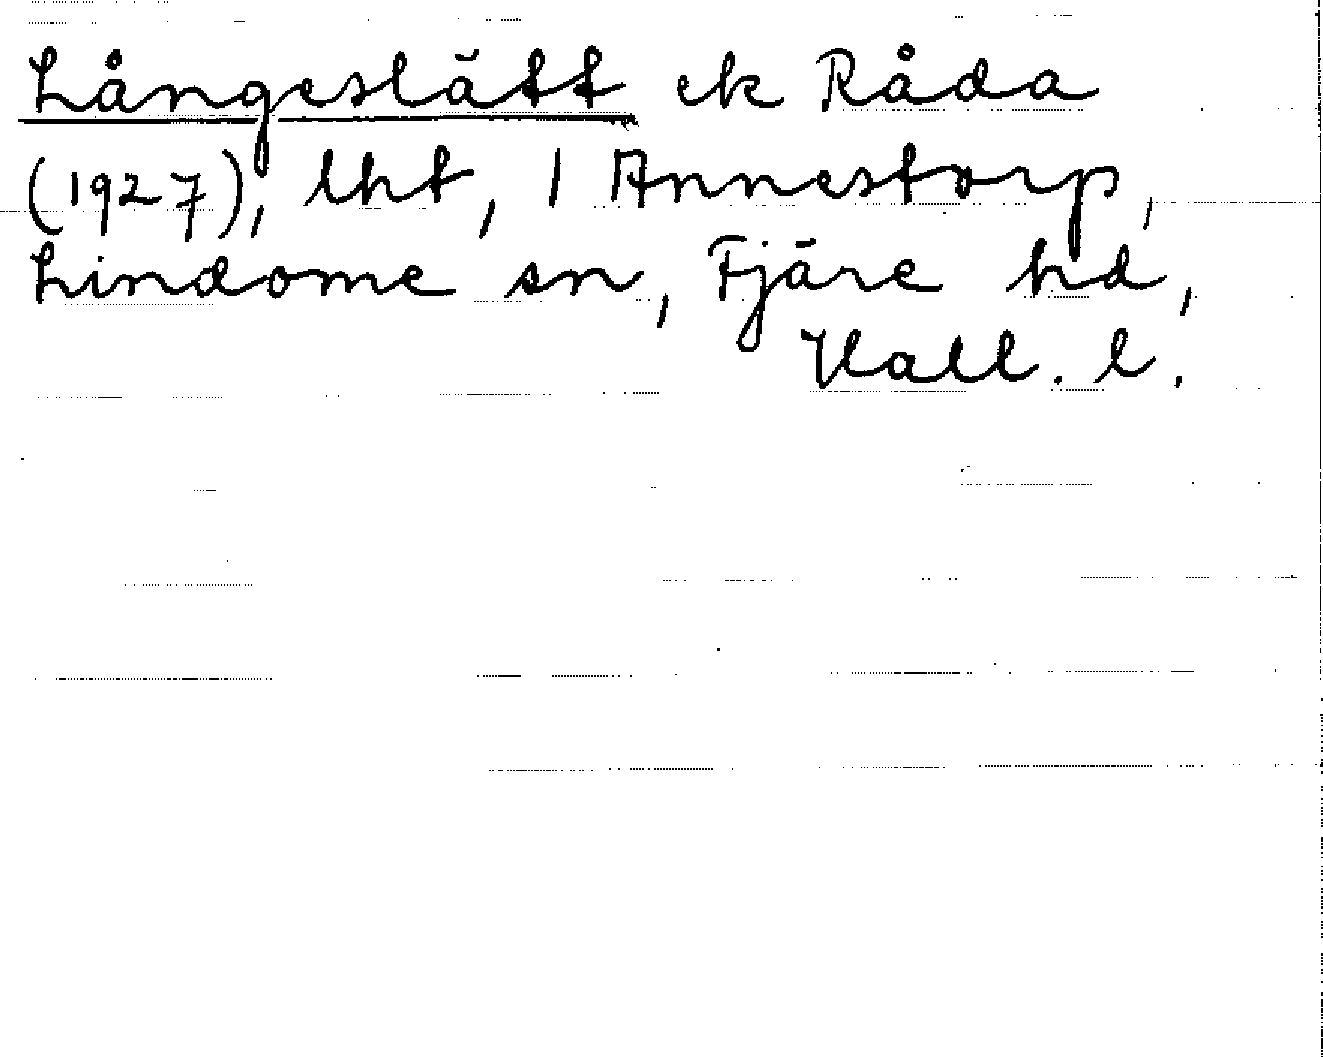 Långeslätt ek Råda
(1927), lht, 1 Annestorp,
Lindome sn, Fjäre hd,
Hall. l.